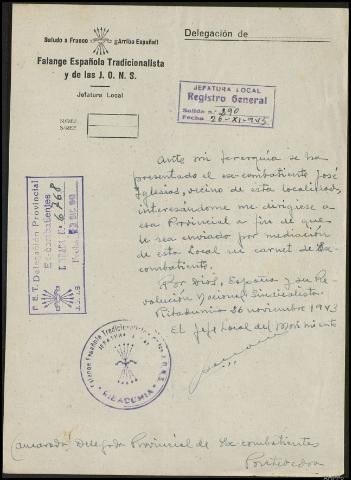 Saludo a Franco ¡Arriba España!
Delegación de
Falange Española Tradicionalista
y de las J. O. N. S.
Jefatura Local
JEFATURA LOCAL
Registro General
Salida n.º 290
Fecha 26-XI-943
Ante mi Jerarquía se ha
presentado el ex-combatiente José
Iglesias, vecino de esta localidad,
interesándome me dirigiese a
esa Provincial a fin de que
le sea enviado por mediación
de esta Local su carnet de Ex-
combatiente.
Por Dios, España y su Re-
volución Nacional Sindicalista
Ribadumia 26 noviembre 1943
El Jefe Local del Movimiento
F.E.T. Delegación Provincial
Ex-combatientes
Nº 6768
Fecha
J.O.N.S.
Falange Española Tradicionalista y de las J.O.N.S.
JEFATURA
RIBADUMIA
Camarada Delegado Provincial de Ex-combatientes
Pontevedra